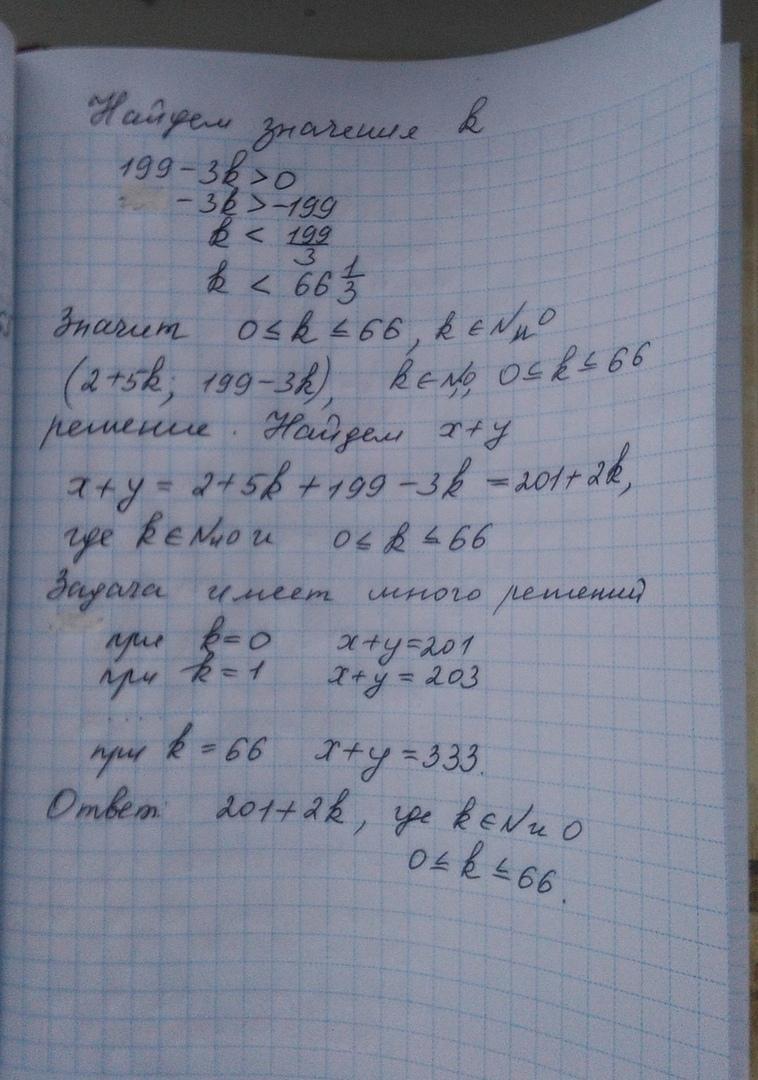 Найдем значения k
199-3k>0
-3k>-199
k < 199/3
k < 66 1/3
Значит 0≤k≤66, k∈N и 0
(2+5k; 199-3k), k∈N и 0, 0≤k≤66
решение. Найдем x+y
x+y = 2+5k+199-3k = 201+2k,
где k∈N и 0 и 0≤k≤66
Задача имеет много решений
при k=0 x+y=201
при k=1 x+y=203
...
при k=66 x+y=333.
Ответ: 201+2k, где k∈N и 0
0≤k≤66.